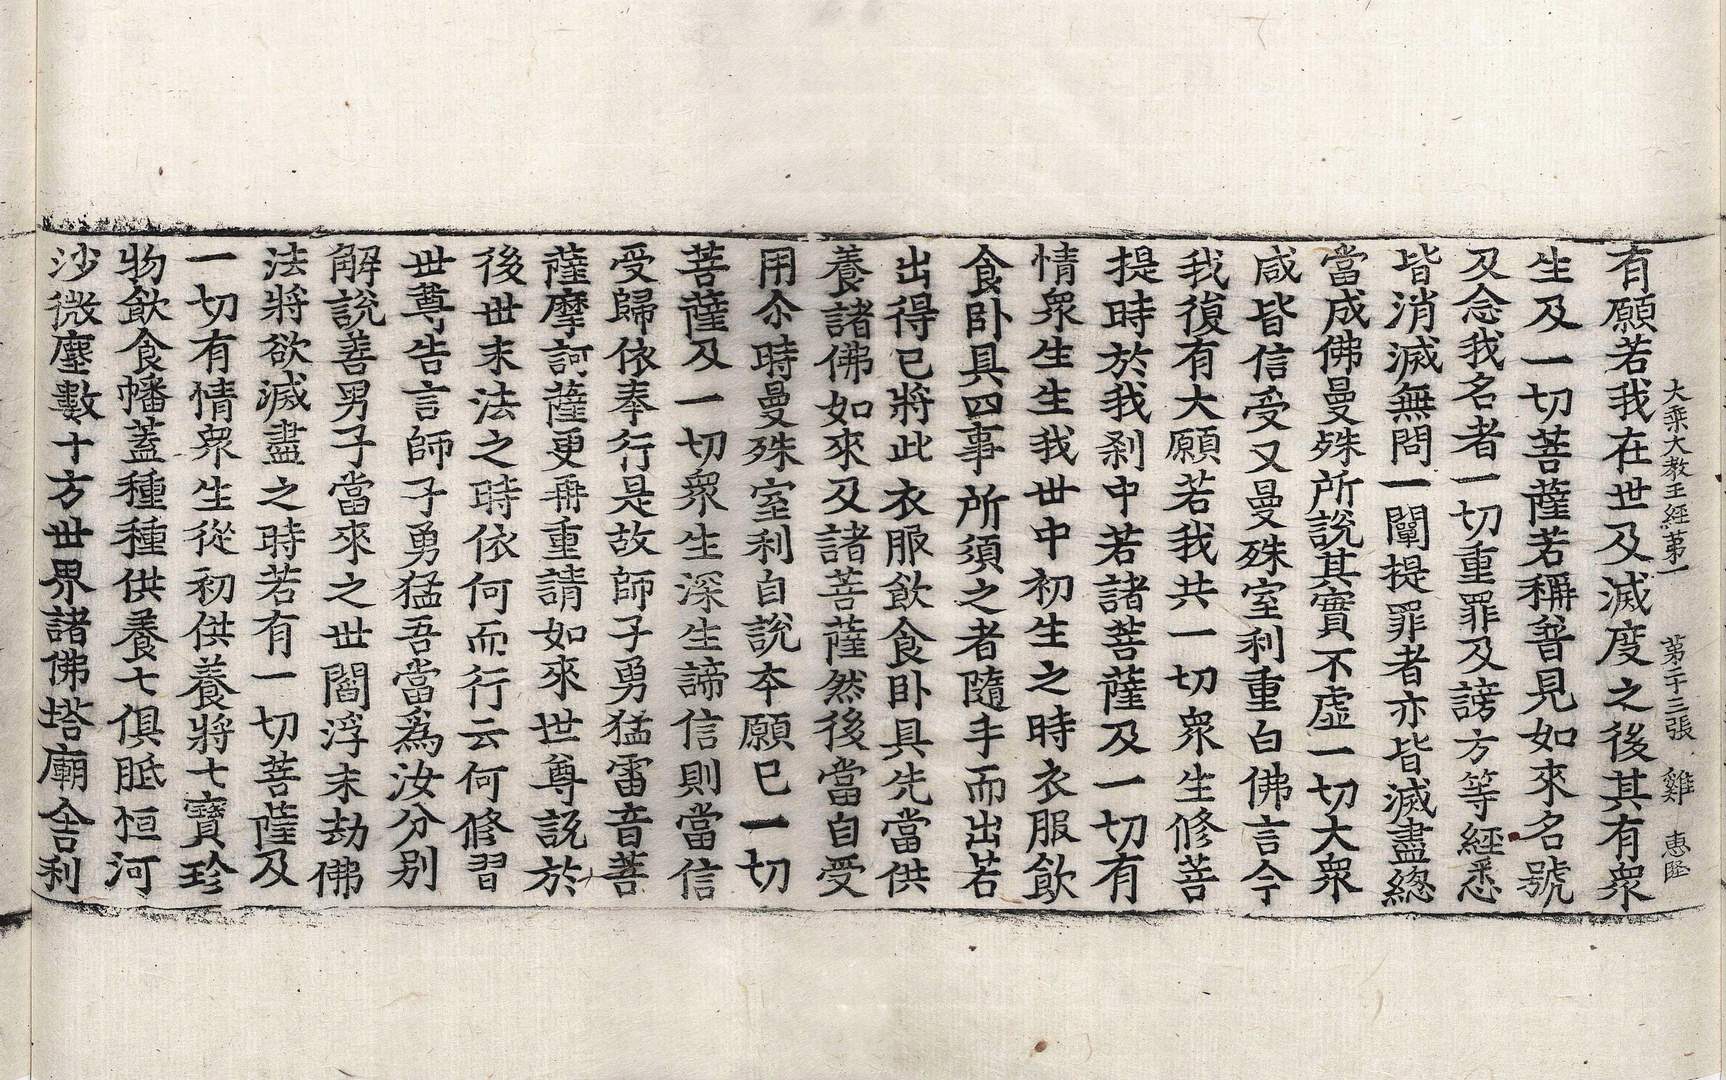 大乘大教王經第一　第十三張　雞　惠堅
有願若我在世及滅度之後其有衆
生及一切菩薩若稱普見如來名號
及念我名者一切重罪及謗方等經悉
皆消滅無問一闡提罪者亦皆滅盡緫
當成佛曼殊所說其實不虛一切大衆
咸皆信受又曼殊室利重白佛言今
我復有大願若我共一切衆生修菩
提時於我刹中若諸菩薩及一切有
情衆生生我世中初生之時衣服飲
食卧具四事所須之者隨手而出若
出得已將此衣服飲食卧具先當供
養諸佛如來及諸菩薩然後當自受
用尒時曼殊室利自說本願已一切
菩薩及一切衆生深生諦信則當信
受歸依奉行是故師子勇猛雷音菩
薩摩訶薩更再重請如來世尊說於
後世末法之時依何而行云何修習
世尊告言師子勇猛吾當爲汝分別
解說善男子當來之世閻浮末劫佛
法將欲滅盡之時若有一切菩薩及
一切有情衆生從初供養將七寶珍
物飲食幡蓋種種供養七俱胝恒河
沙微塵數十方世界諸佛塔廟舍利